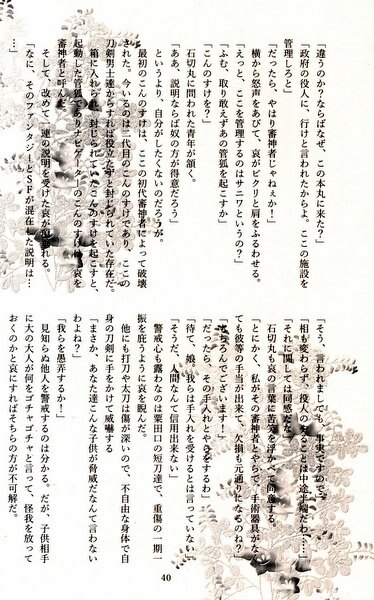 「違うのか？ならばなぜ、この本丸に来た？」
「政府の役人に、行けと言われたからよ。ここの施設を
管理しろと」
「だったら、やはり審神者じゃねぇか！」
横から怒声をあびて、哀がビクリと肩をふるわせる。
「えっと、ここを管理するのはサニワというの？」
「ふむ、取り敢えずあの管狐を起こすか」
「こんのすけを？」
石切丸に問われた青年が頷く。
「ああ、説明ならば奴の方が得意だろう」
というより、自分がしたくないのだろうが。
最初のこんのすけは、ここの初代審神者によって破壊
された。今いるのは二代目のこんのすけであり、ここの
刀剣男士達からすれば役立たずとされていた存在だ。
箱に入れられ、封じられていたこんのすけを起こすと、
起動した管狐でありナビゲーターのこんのすけは、哀を
審神者と呼んだ。
そして、改めて一連の説明を受けた哀が
「なに、そのファンタジーとSFが混在した説明は…
…」
「そう、言われましても、事実ですので」
「相も変わらず、役人のすることは中途半端だわ……」
「それに関しては同感だな」
石切丸も哀の言葉に苦笑を浮かべて同意する。
「とにかく、私がその審神者とやらで、手術器具がなく
ても彼等の手当が出来て、欠損も元通りになるのね？」
「もちろんでございます！」
「だったら、その手入れとやらをするわ」
「待て、娘。我らは手入れを受けるとは言っていない」
「そうだ、人間なんて信用出来ない」
警戒心も露わなのは粟田口の短刀達で、重傷の一期一
振を庇うように哀を睨んだ。
他にも打刀や太刀は傷が深いので、不自由な身体で自
身の刀剣に手をかけて威嚇する
「まさか、あなた達こんな子供が脅威だなんて言わない
わよね？」
「我らを愚弄するか！」
見知らぬ他人を警戒するのは分かる。だが、子供相手
に大の大人が何をゴチャゴチャと言って、怪我を放って
おくのかと哀にすればそちらの方が不可解だ。
40